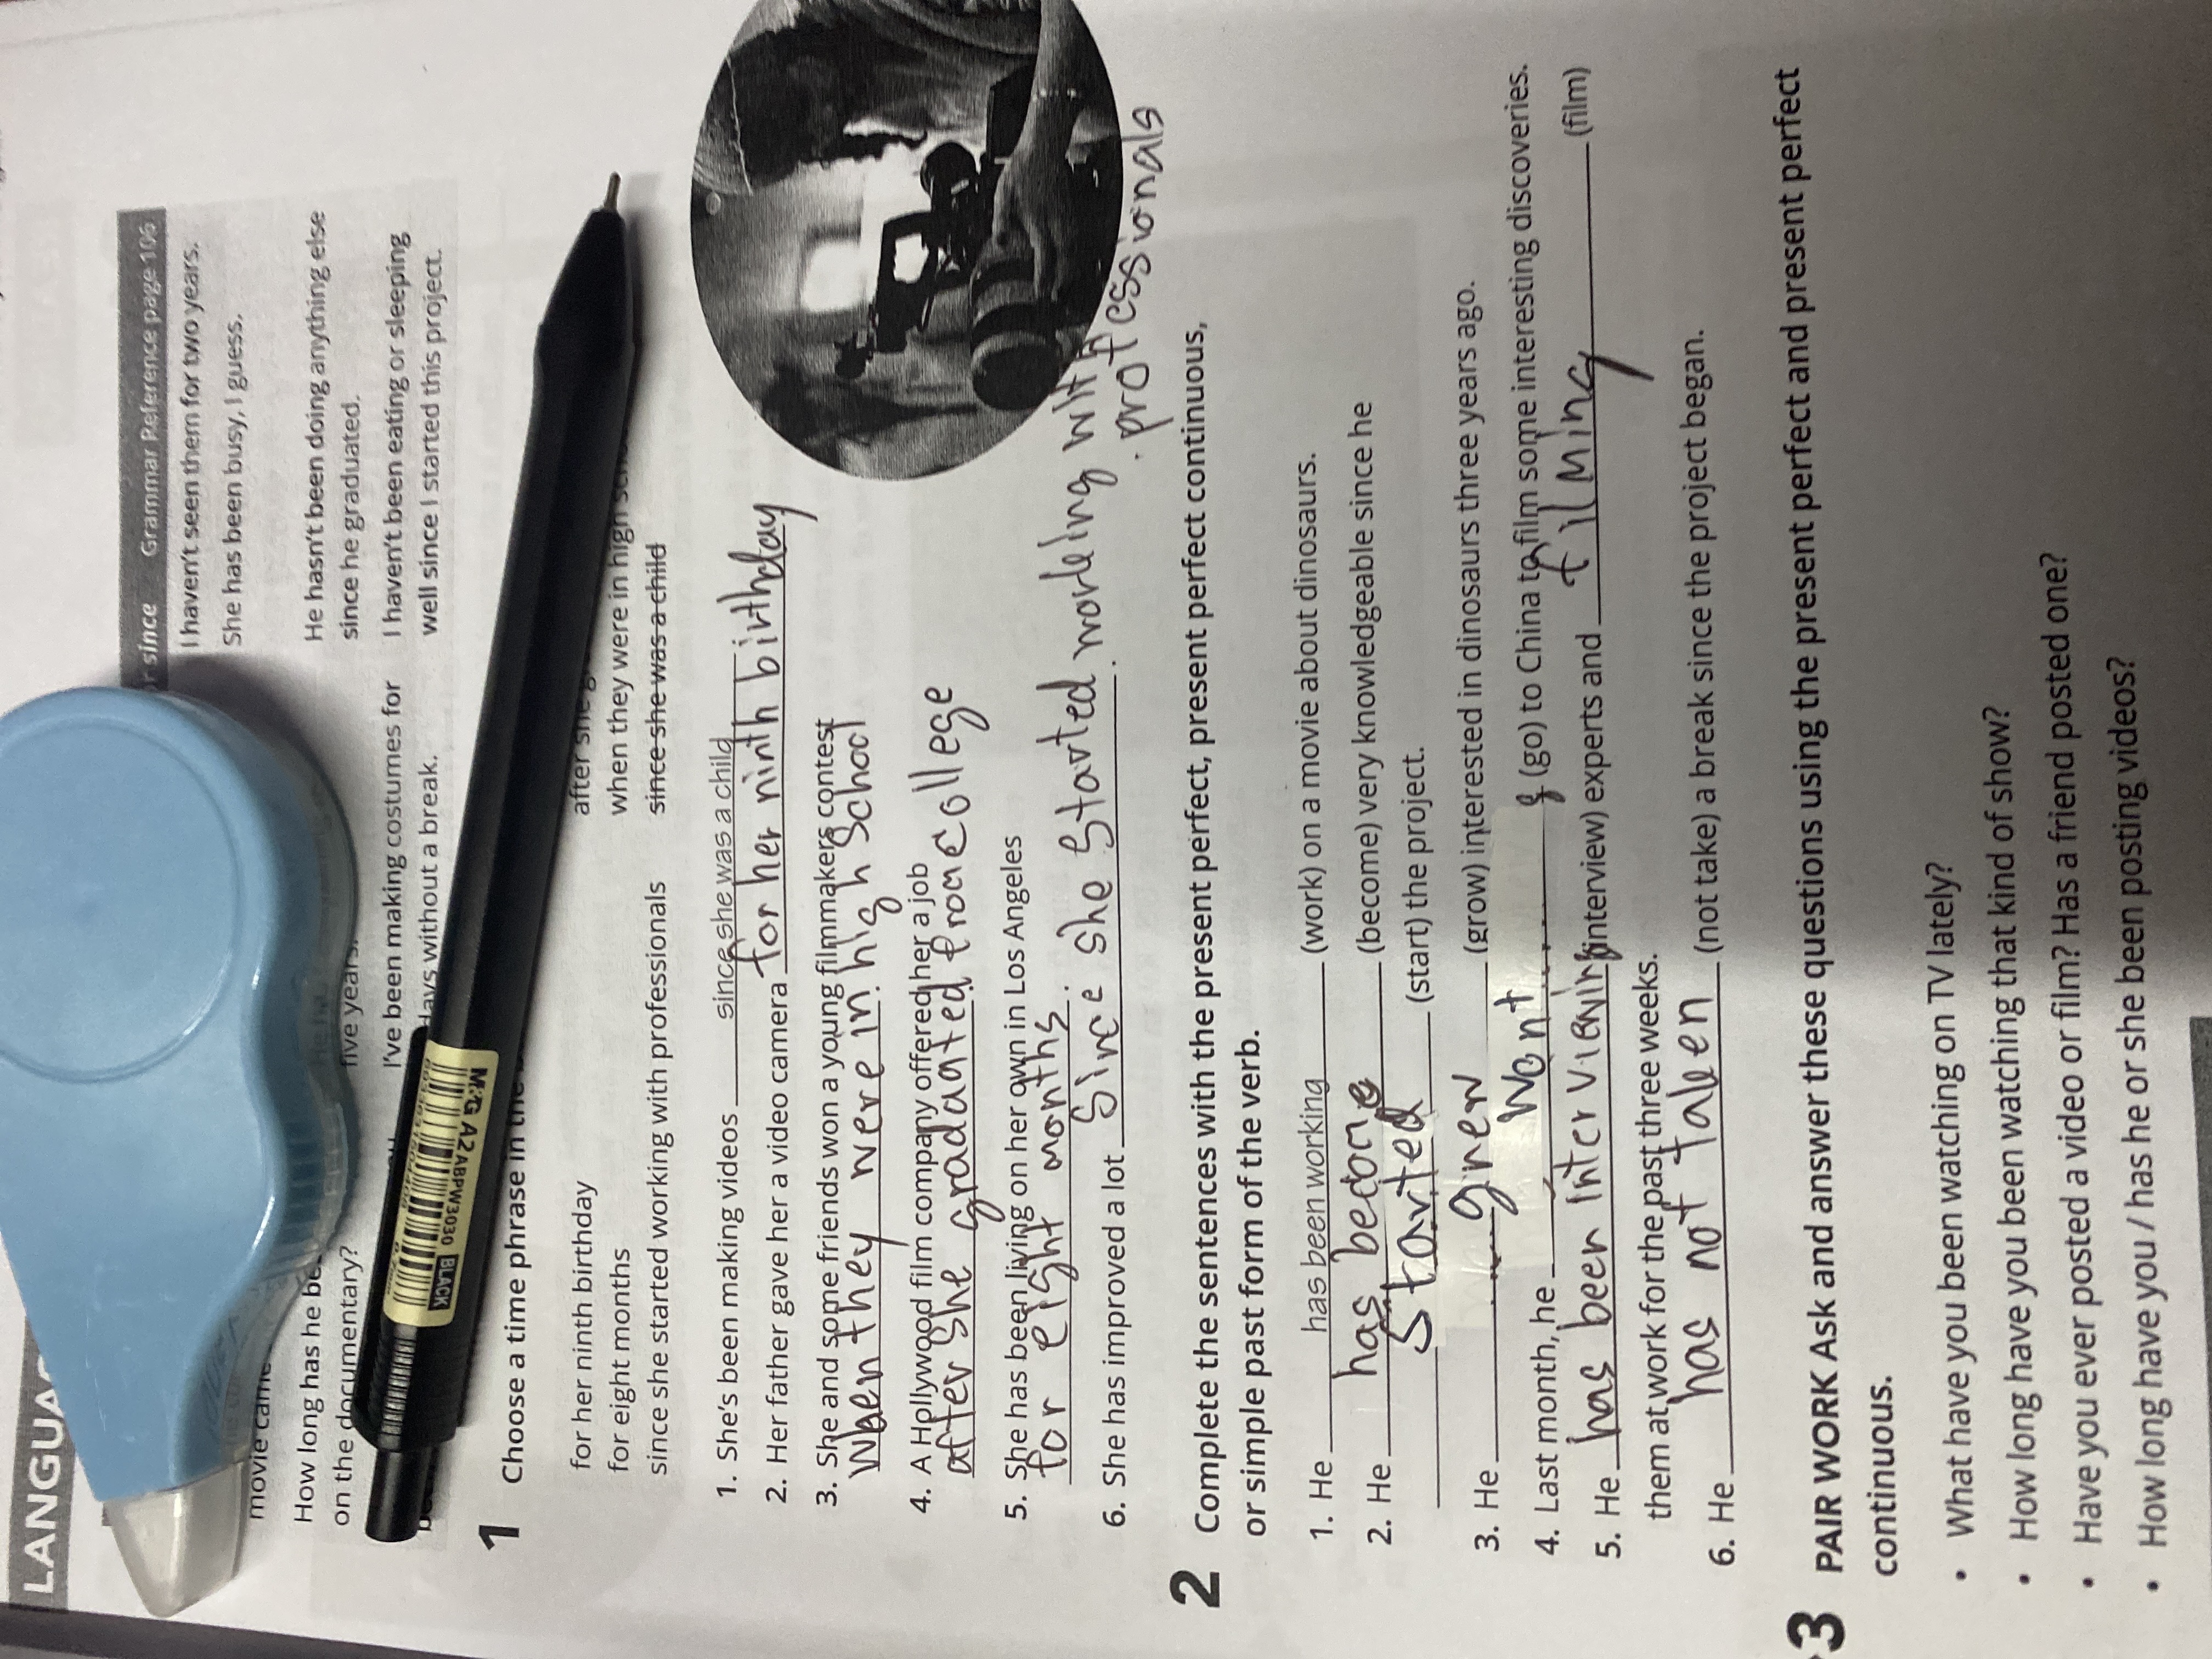 LANGUA
r since Grammar Reference page 106
I haven't seen them for two years.
She has been busy, I guess.
movie came
How long has he be
on the documentary?
five years.
He hasn't been doing anything else
since he graduated.
I've been making costumes for
days without a break.
I haven't been eating or sleeping
well since I started this project.
M&G A2 ABPW3030 BLACK
1 Choose a time phrase in the
for her ninth birthday
for eight months
since she started working with professionals
after she g
when they were in high
since she was a child
1. She's been making videos since she was a child
2. Her father gave her a video camera for her ninth birthday
3. She and some friends won a young filmmakers contest
when they were in high School
4. A Hollywood film company offered her a job
after she gradaated from college
5. She has been living on her own in Los Angeles
for eight months.
6. She has improved a lot Since she started working with
professionals
2 Complete the sentences with the present perfect, present perfect continuous,
or simple past form of the verb.
1. He has been working (work) on a movie about dinosaurs.
2. He has become (become) very knowledgeable since he
Started (start) the project.
3. He grew (grow) interested in dinosaurs three years ago.
4. Last month, he Wont (go) to China to film some interesting discoveries.
5. He has been interviewing (interview) experts and filming (film)
them at work for the past three weeks.
6. He has not taken (not take) a break since the project began.
3 PAIR WORK Ask and answer these questions using the present perfect and present perfect
continuous.
• What have you been watching on TV lately?
• How long have you been watching that kind of show?
• Have you ever posted a video or film? Has a friend posted one?
• How long have you / has he or she been posting videos?